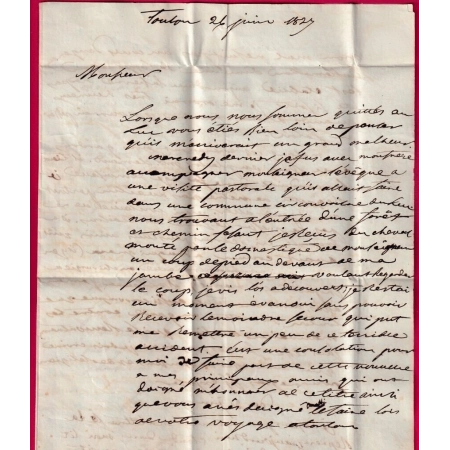 Toulon 26 juin 1827
Monsieur
Lorsque nous nous sommes quittés au
Luc vous étiez bien loin de penser
qu'il m'arriverait un grand malheur.
mercredi dernier je fus avec mon frère
accompagner monseigneur l'évêque a
une visite pastorale qu'il allait faire
dans une commune circonvoisine
nous trouvant a l'entrée d'une forêt
et chemin faisant je reçus du cheval
monté par le domestique de monseigneur
un coup de pied au devant de ma
jambe voulant regarder
le coup, je vis l'os a découvert; je restai
un moment évanoui sans pouvoir
recevoir le moindre secours qui put
me remettre un peu de ce terrible
accident. C'est une consolation pour
moi de faire part de cette nouvelle
a mes principaux amis qui ont
daigné m'honorer de ce titre ainsi
que vous avés daigné le faire lors
de votre voyage a toulon